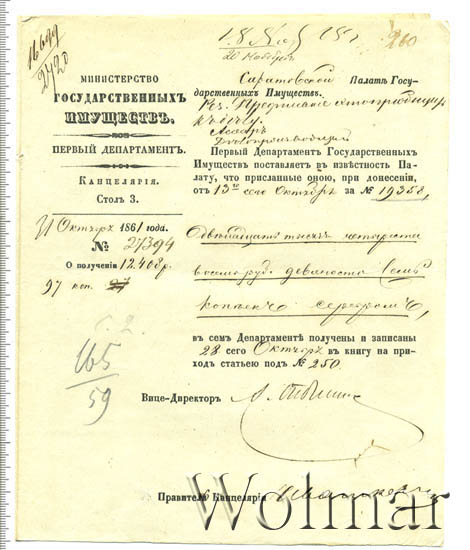 16699
2420
18
20 Ноября
260
МИНИСТЕРСТВО
ГОСУДАРСТВЕННЫХЪ
ИМУЩЕСТВЪ.
ПЕРВЫЙ ДЕПАРТАМЕНТЪ.
КАНЦЕЛЯРІЯ.
Столъ 3.
31 Октября 1861 года.
№ 27394
О полученіи 12.408 р.
97 коп.
165
59
Саратовской Палатѣ Госу-
дарственныхъ Имуществъ.
Первый Департаментъ Государственныхъ
Имуществъ поставляетъ въ извѣстность Па-
лату, что присланные оною, при донесеніи
отъ 13го сего Октября за № 19358,
Двѣнадцать тысячъ четыреста
восемь руб. девяносто семь
копѣекъ серебромъ,
въ семъ Департаментѣ получены и записаны
28 сего Октября въ книгу на при-
ходъ статьею подъ № 250.
Вице-Директоръ
Правитель Канцеляріи
Wolmar